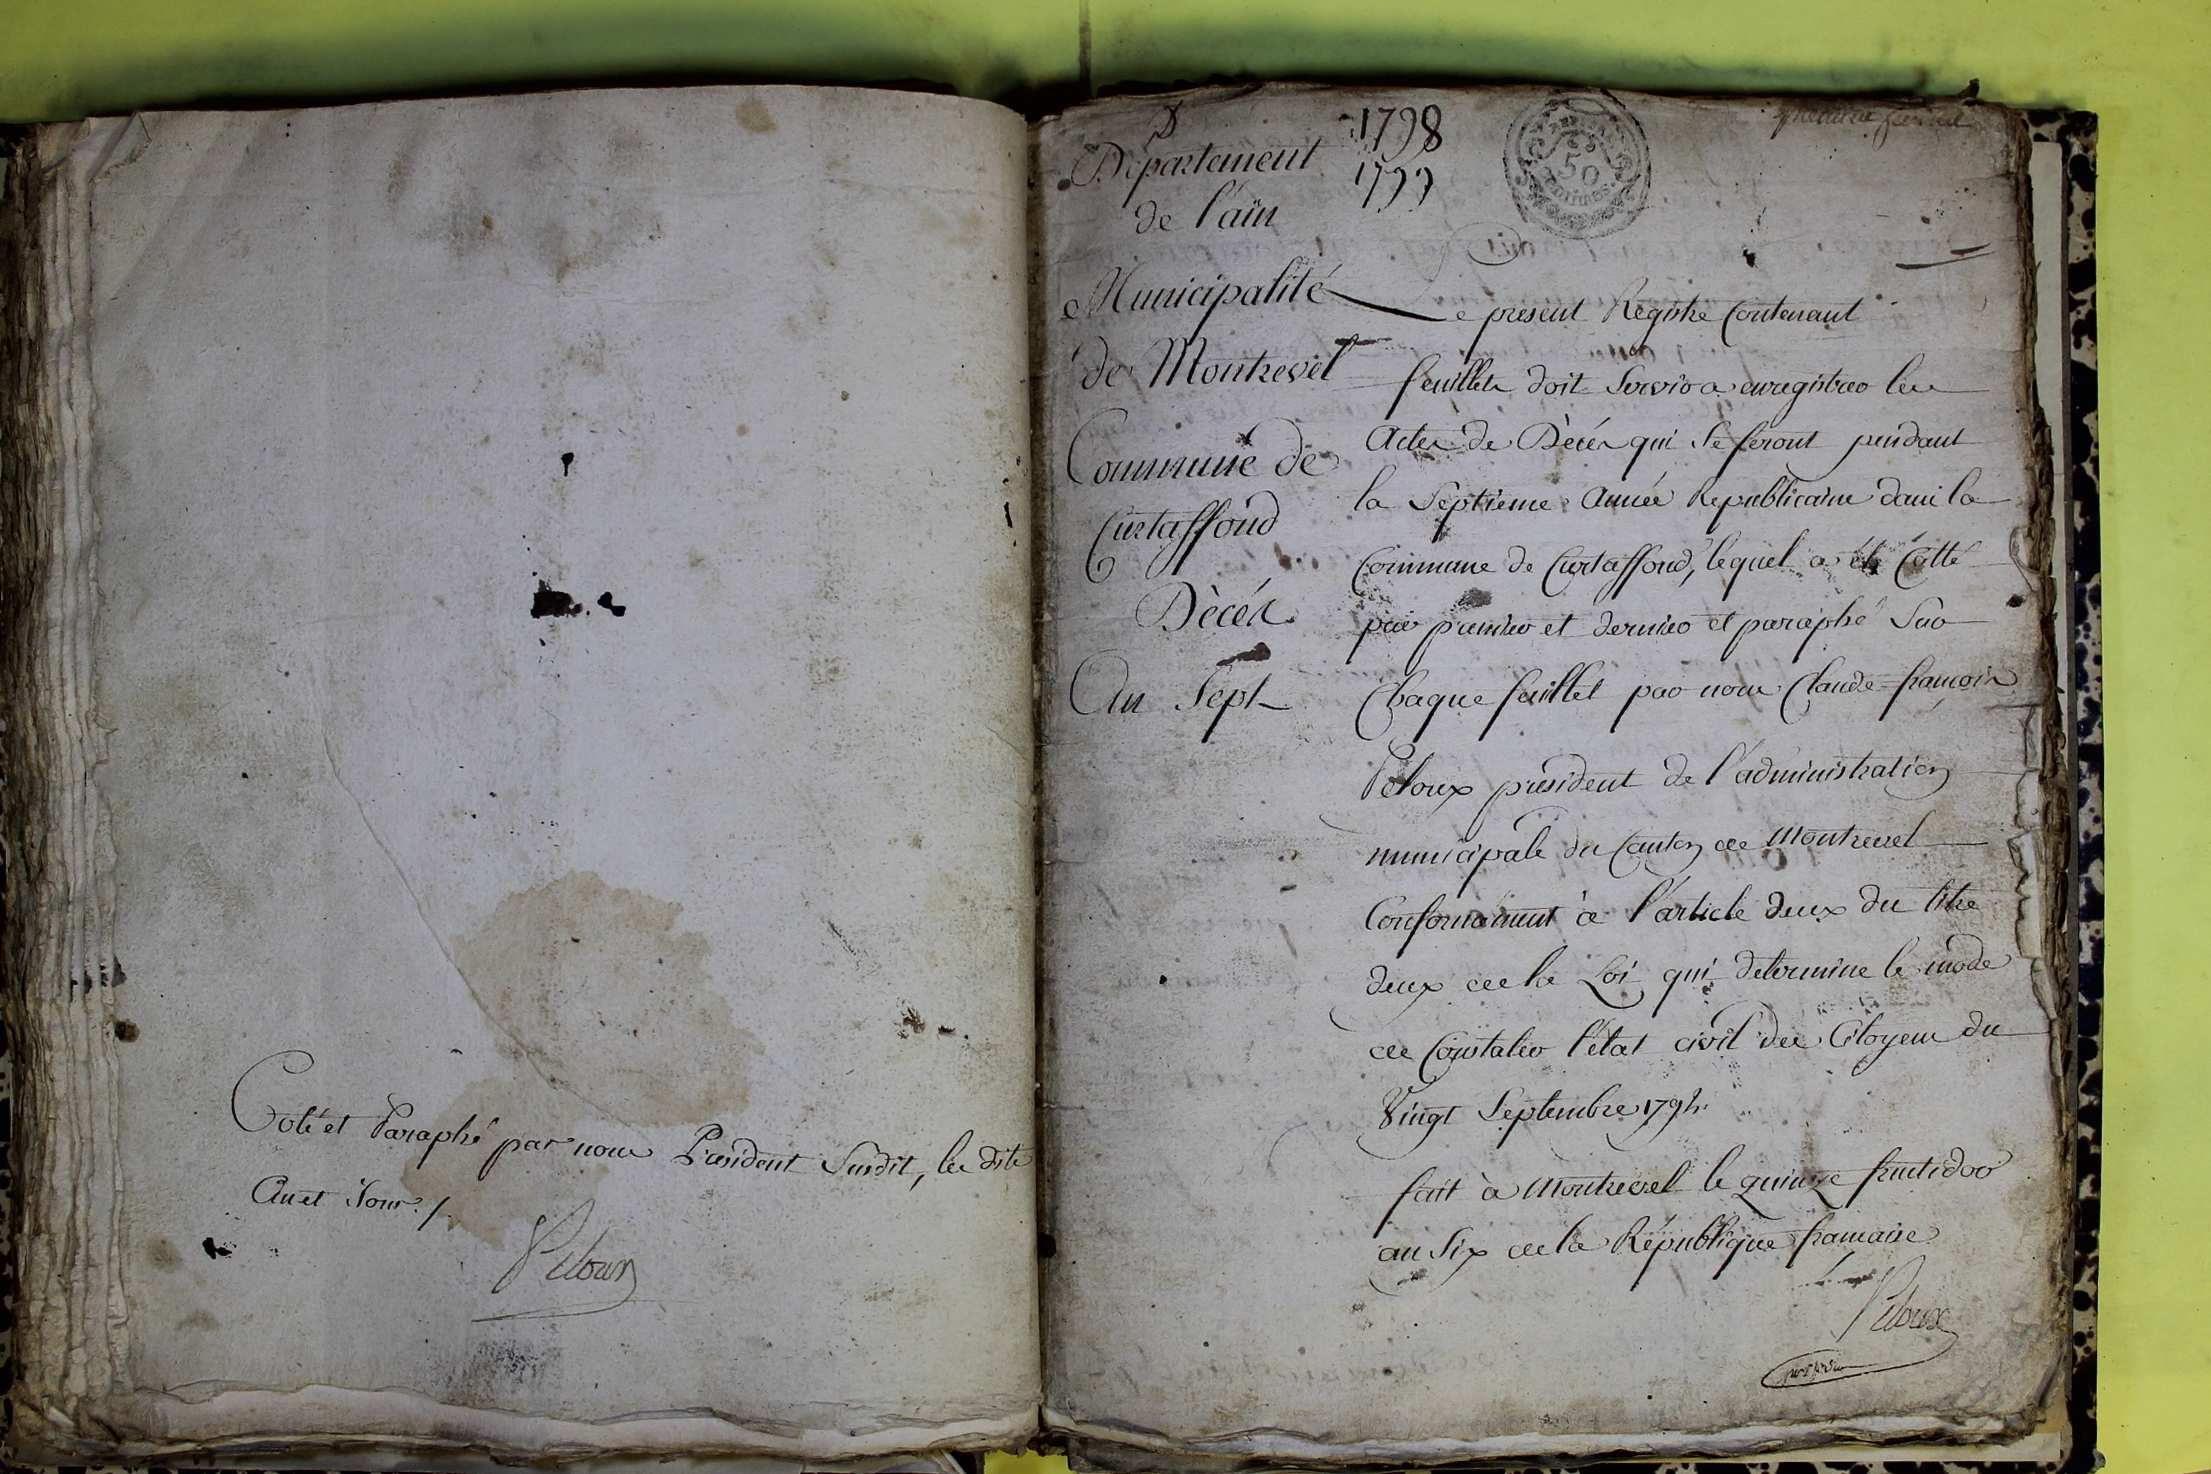 Coté et Paraphé par nous Président Susdit, les dits
An et Jour ./
Peloux
D
1798
1799
50
Centimes
premier feuillet
Département
de l'ain
Municipalité
de Montrevel
Commune de
Curtaffond
Dècés
An Sept
Le present Registre Contenant
feuillets doit Servir a enregistrer les
Actes de Dècés qui Se feront pendant
la Septieme Année Republicaine dans la
Commune de Curtaffond, lequel a été Cotté
par premier et dernier et paraphé Sur
Chaque feuillet par nous Claude francois
Peloux président de l'administration
municipale du Canton de Montrevel
Conformément à l'article deux du titre
deux de la Loi qui détermine le mode
de Constater l'état civil des Citoyens du
Vingt Septembre 1792.
fait à Montrevel le quinze fructidor
an Six de la République francaise
Peloux